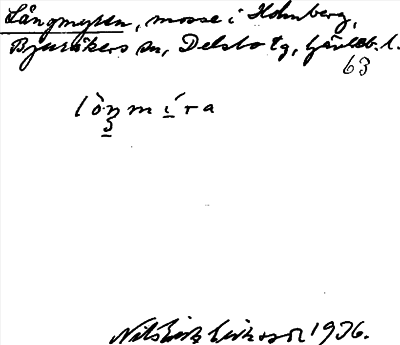 Långmyren, mosse i Holmberg,
Bjuråkers sn, Delsbo tg, Gävleb. l.
63
lòŋmíra
Nils Erik Eriksson 1936.